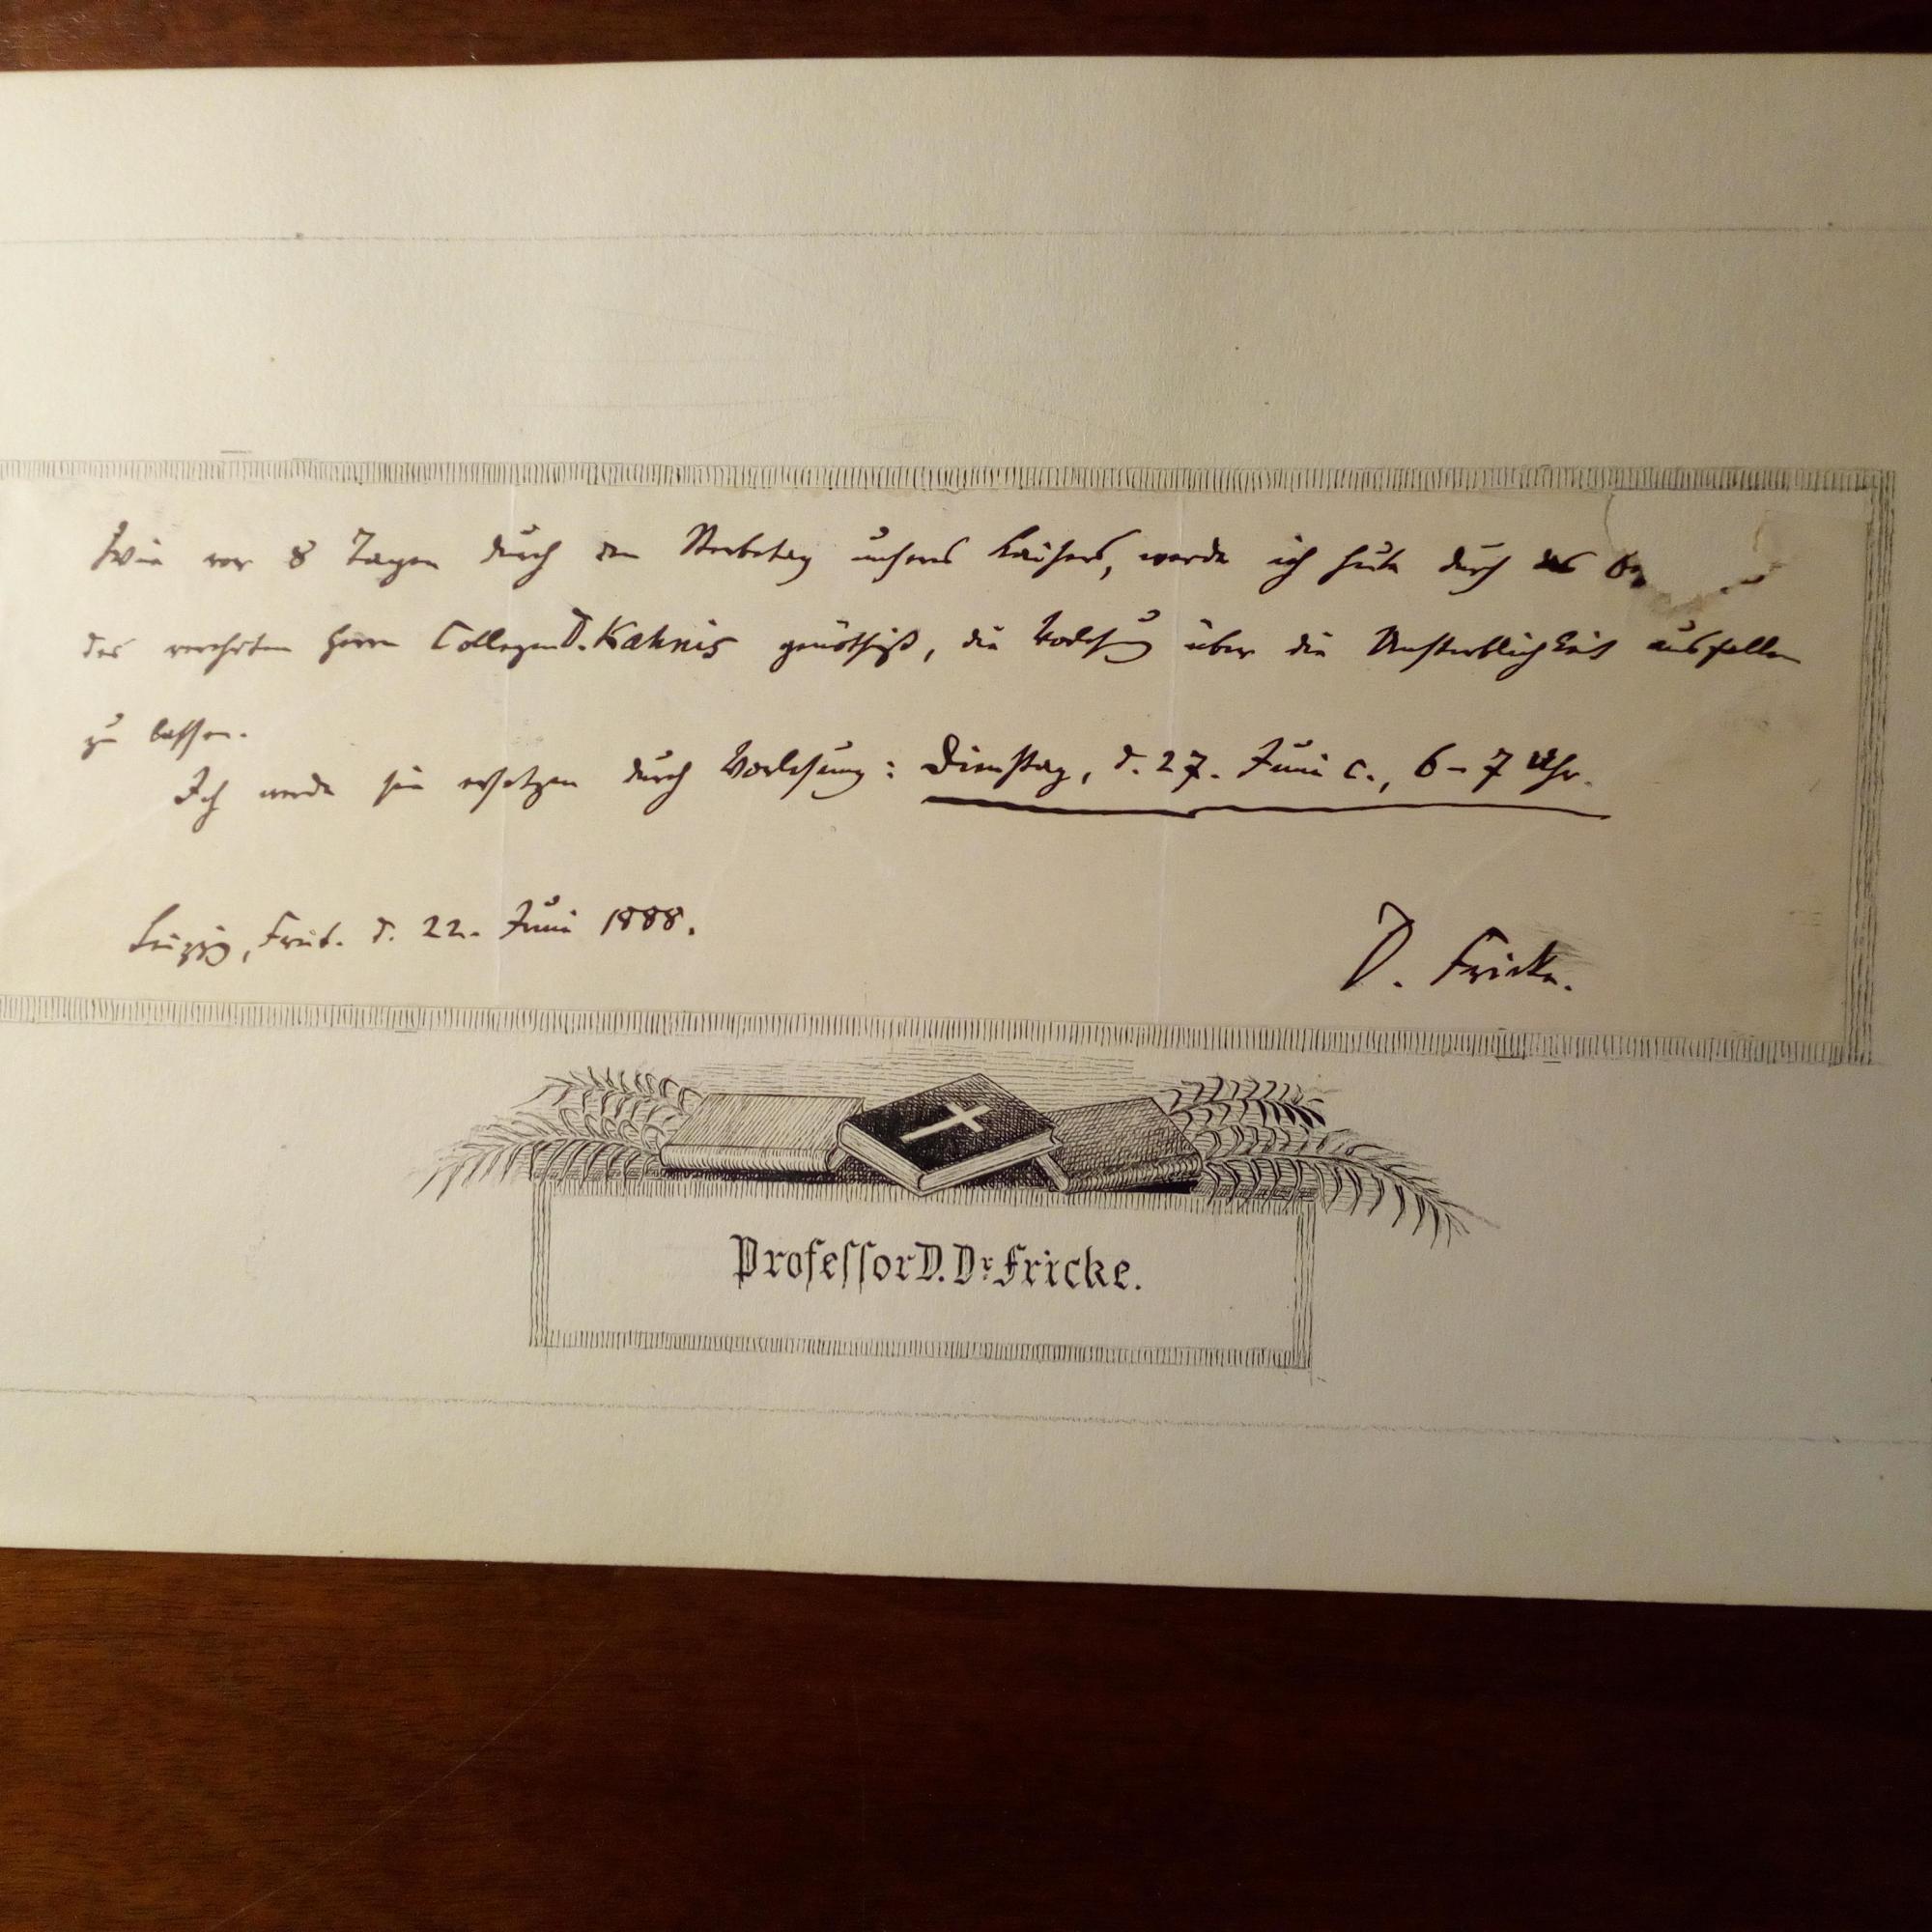 Wie vor 8 Tagen durch den Sterbetag unseres Kaisers, werde ich heute durch das
des verehrten Herrn Collegen D. Kahnis genöthigt, die Vorlesung über die Unsterblichkeit ausfallen
zu lassen.
Ich werde sie ersetzen durch Vorlesung: Dienstag, d. 27. Juni c., 6-7 Uhr.
Leipzig, Freit. d. 22. Juni 1888.
D. Fricke.
Professor D. Dr. Fricke.